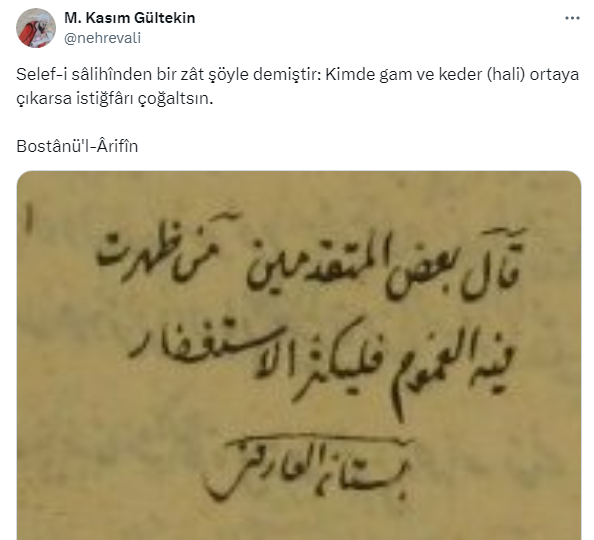 M. Kasım Gültekin
@nehrevali
Selef-i sâlihînden bir zât şöyle demiştir: Kimde gam ve keder (hali) ortaya
çıkarsa istiğfârı çoğaltsın.
Bostânü'l-Ârifîn
قال بعض المتقدمين من ظهرت
فيه الغموم فليكثر الاستغفار
بستان العارفين